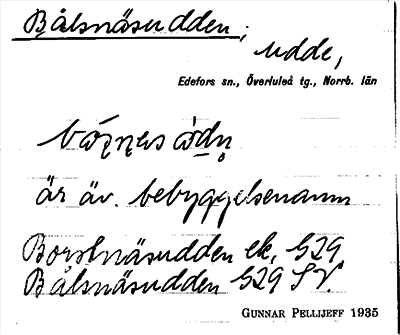 Bålsnäsudden;
udde,
Edefors sn., Överluleå tg., Norrb. län
är äv. bebyggelsenamn
Borstnäsudden ek. G29
Bålsnäsudden G29 SV.
GUNNAR PELLIJEFF 1935